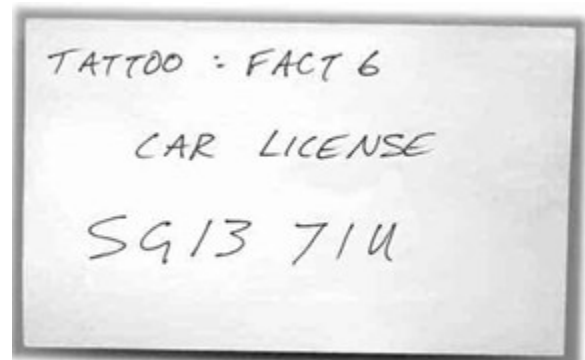 TATTOO : FACT 6
CAR LICENSE
SG13 71U